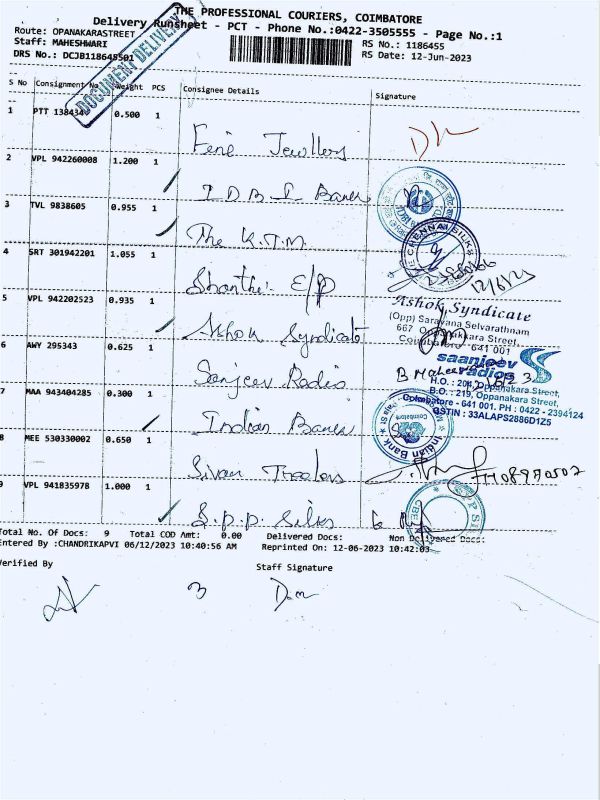 THE PROFESSIONAL COURIERS, COIMBATORE
Delivery Runsheet - PCT - Phone No.:0422-3505555 - Page No.:1
Route: OPANAKARASTREET
Staff: MAHESHWARI
DRS No.: DCJB118645501
RS No.: 1186455
RS Date: 12-Jun-2023
DOCUMENT DELIVERY
S No Consignment No Weight PCS Consignee Details Signature
1 PTT 138434 0.500 1 Jewellers
2 VPL 942260008 1.200 1 I D B I Bank
3 TVL 9838605 0.955 1 The K.T.M.
CHENNAI SILKS
4 SRT 301942201 1.055 1 Shanthi E/P
12/6/23
5 VPL 942202523 0.935 1 Ashok Syndicate
Ashok Syndicate
(Opp) Saravana Selvarathnam
667 Oppanakkara Street,
Coimbatore - 641 001
6 AWY 295343 0.625 1 Sanjeev Radio
saanjeev radios
H.O. : 204, Oppanakara Street,
B.O. : 219, Oppanakara Street,
Coimbatore - 641 001. PH : 0422 - 2394124
GSTIN : 33ALAPS2886D1Z5
7 MAA 943404285 0.300 1 Indian Bank
Indian Bank
Coimbatore
8 MEE 530330002 0.650 1 Sivan
9 VPL 941835978 1.000 1 S.P.P. Silks
Total No. Of Docs: 9 Total COD Amt: 0.00 Delivered Docs: Non Delivered Docs:
Entered By :CHANDRIKAPVI 06/12/2023 10:40:56 AM Reprinted On: 12-06-2023 10:42:03
Verified By Staff Signature